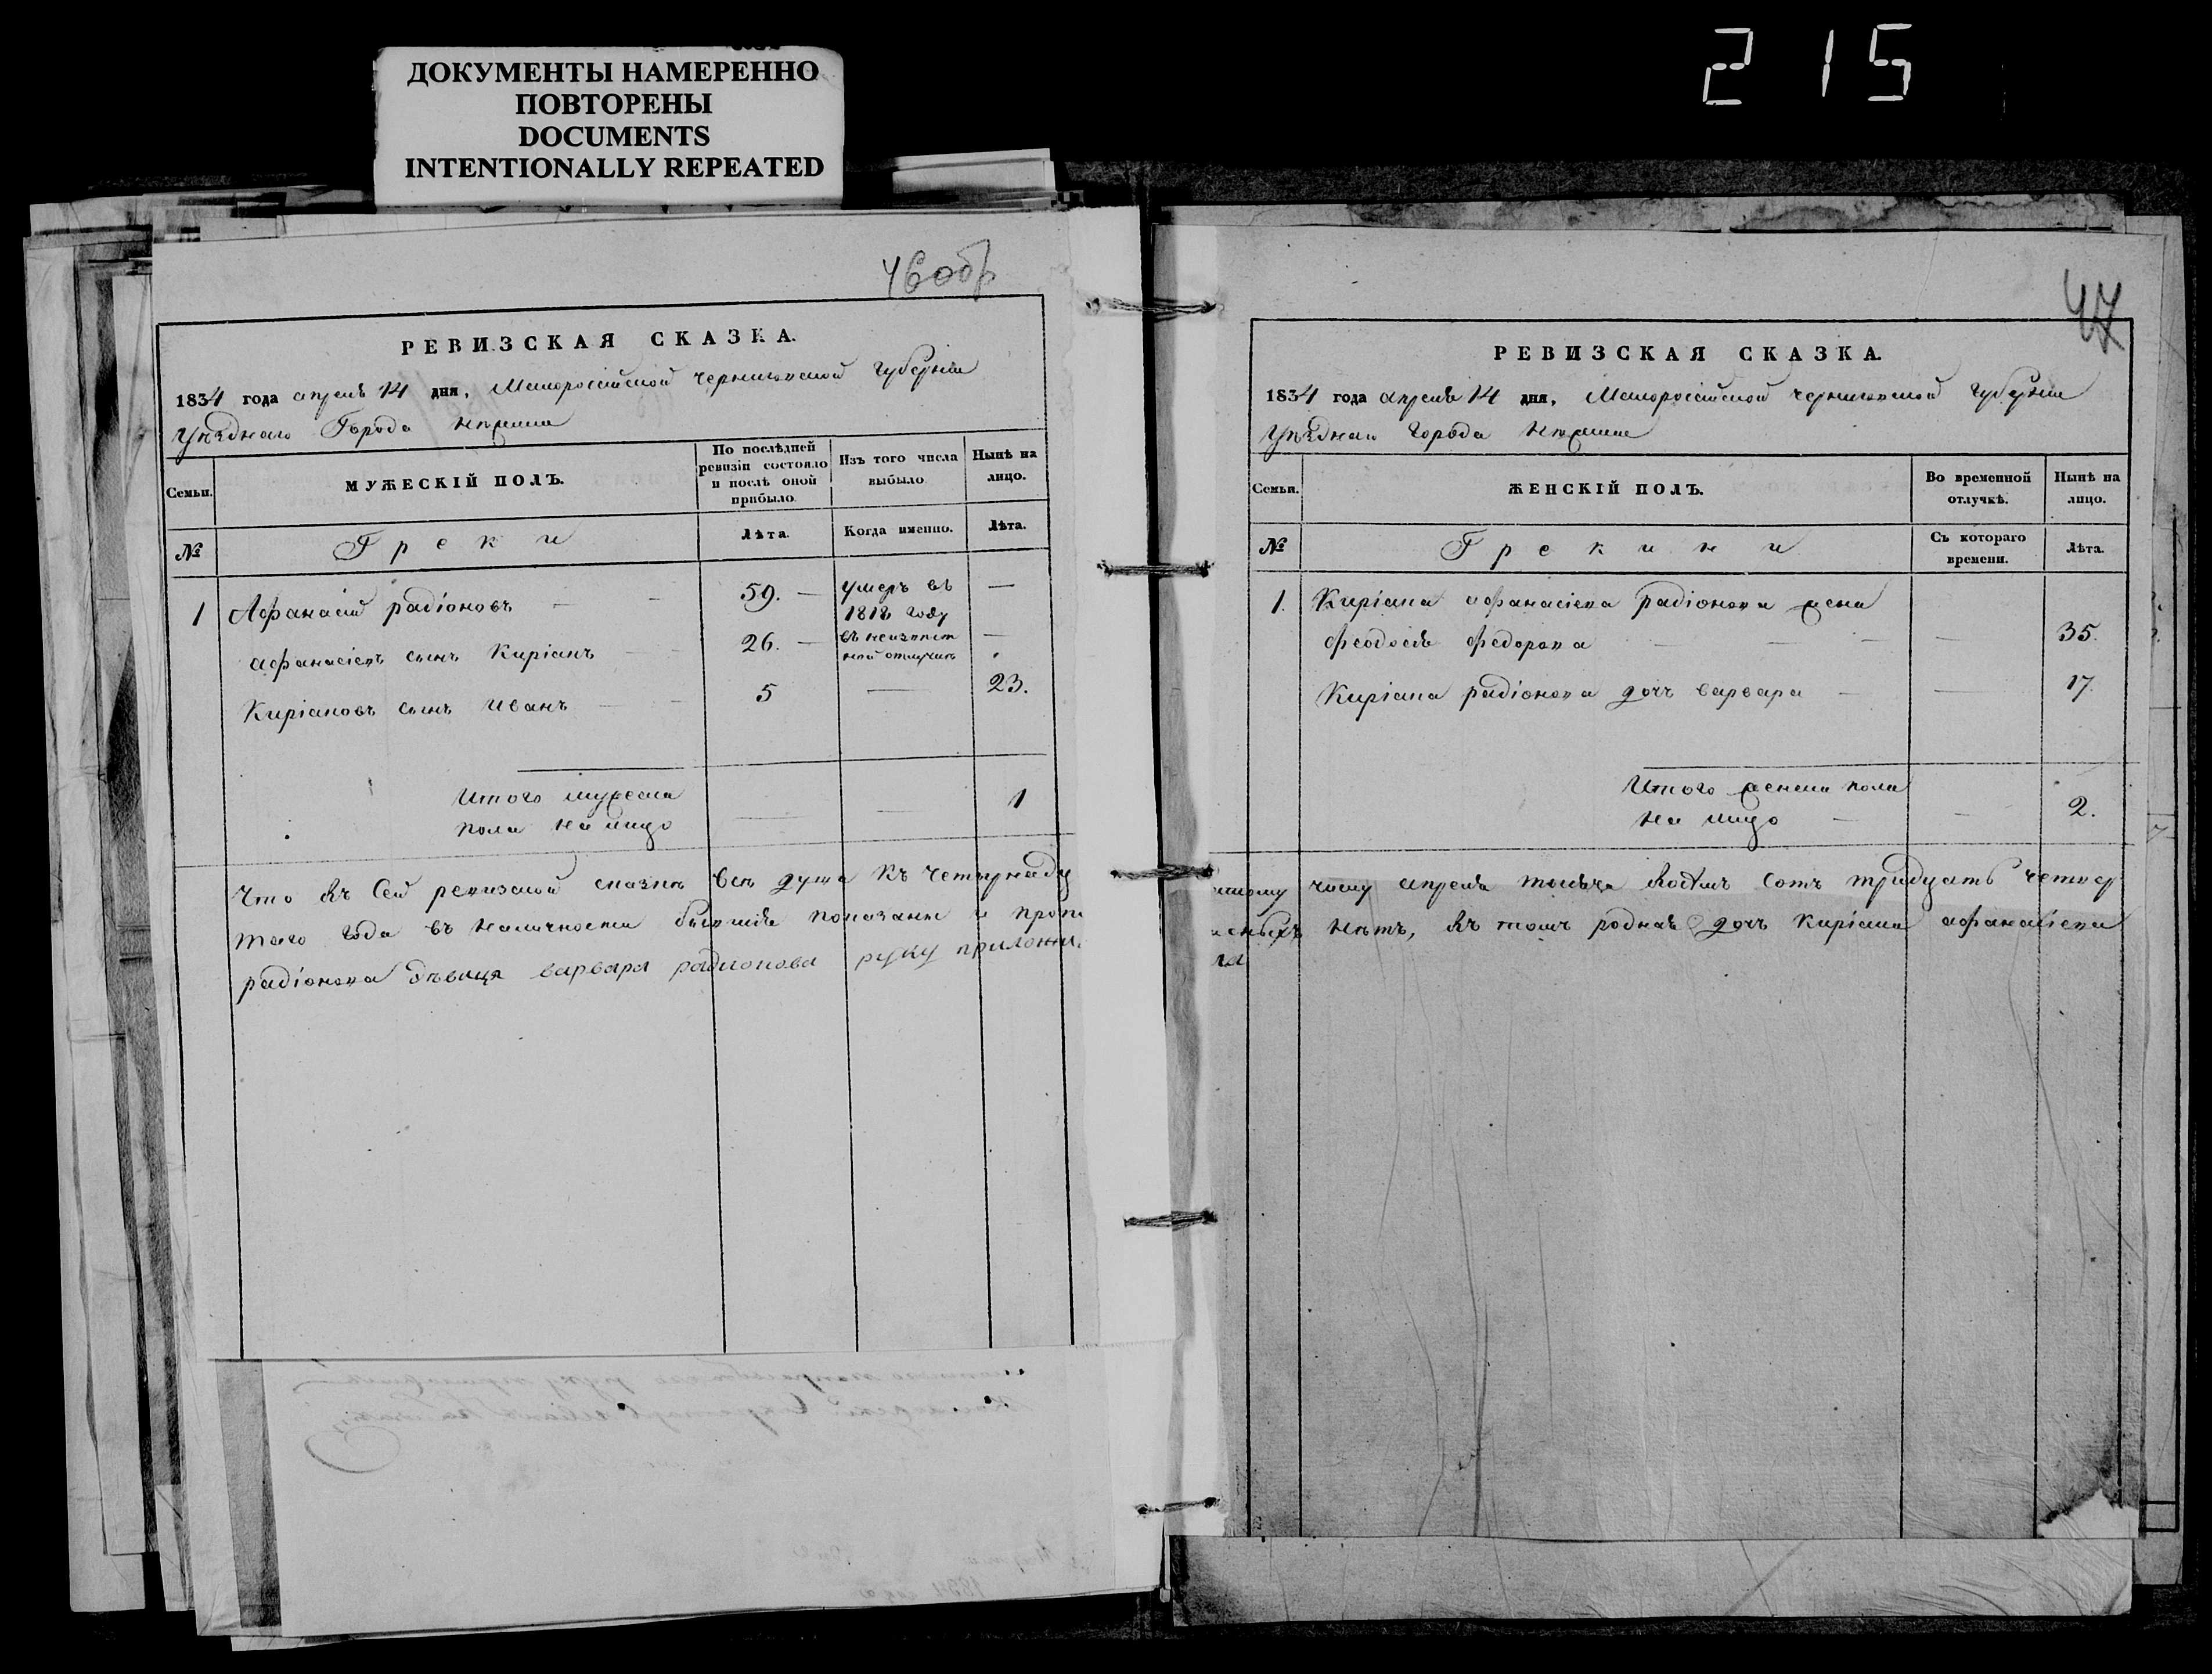 ДОКУМЕНТЫ НАМЕРЕННО
ПОВТОРЕНЫ
DOCUMENTS
INTENTIONALLY REPEATED
215
46 об
РЕВИЗСКАЯ СКАЗКА.
1834 года апреля 14 дня, Малороссійской черниговской губерніи
уѣзднаго Города нѣжина
Семьи.
МУЖЕСКІЙ ПОЛЪ.
По послѣдней ревизіи состояло и послѣ оной прибыло.
Изъ того числа выбыло
Нынѣ на лицо.
№
Греки
Лѣта.
Когда именно.
Лѣта.
1 Афанасій радіоновъ — — 59. — умеръ въ 1818 году —
афанасіевъ сынъ Киріанъ — 26. — въ неизвѣстной отлучкѣ —
Киріановъ сынъ Иванъ — — 5 — 23.
Итого мужеска
пола на лицо — — 1
Что въ сей ревизской сказкѣ всѣ душа къ четырнадц
таго года въ наличности бывшія показани и пропи
радіонова дѣвица варвара радионова руку приложи
47
РЕВИЗСКАЯ СКАЗКА.
1834 года апреля 14 дня, Малороссійской черниговской губерніи
уѣзднаго города нѣжина
Семьи.
ЖЕНСКІЙ ПОЛЪ.
Во временной отлучкѣ.
Нынѣ на лицо.
№
Грекини
Съ котораго времени.
Лѣта.
1. Киріана афанасіева радіонова жена
феодосія федорова — — — — 35.
Киріана радіонова дочь варвара — — 17.
Итого женска пола
на лицо — — 2.
числу апреля тысяча восемъ сотъ тридцать четвер
нѣтъ, въ томъ родная дочь Киріана афанасіева
ла